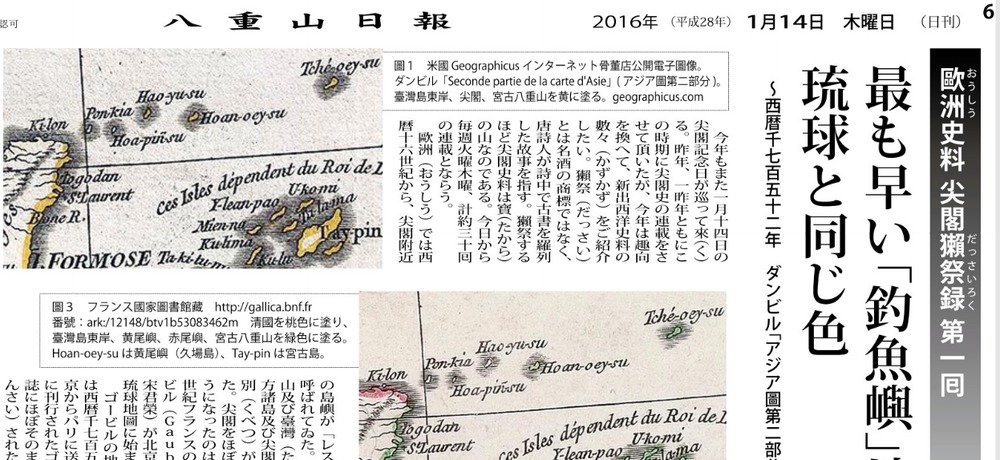 認可
八重山日報
2016年 （平成28年） 1月14日 木曜日 （日刊）
6
歐洲史料 尖閣獺祭録 第一囘
おうしう
だっさいろく
最も早い「釣魚嶼」
琉球と同じ色
～西暦千七百五十二年 ダンビル「アジア圖第二部
図1 米國 Geographicus インターネット骨董店公開電子圖像。
ダンビル「Seconde partie de la carte d'Asie」( アジア圖第二部分 )。
臺灣島東岸、尖閣、宮古八重山を黄に塗る。geographicus.com
Tché-oey-su
Hao-yu-su
Pon-kia
Hoan-oey-su
Ki-lon
Hoa-pin-su
Togodan
S.t Laurent
Bone R.
I. FORMOSE
ces Isles dépendent du Roi de L
U-komi
Y-lean-pao
Mien-na
Ku-lima
Ta-ki-tu-m
Ku-lu
Ta-lama
Tay-pin
今年もまた一月十四日の
尖閣記念日が巡って來（く）
る。昨年、一昨年ともにこ
の時期に尖閣史の連載をさ
せて頂いたが、今年は趣向
を換へて、新出西洋史料の
數々（かずかず）をご紹介
したい。獺祭（だっさい）
とは名酒の商標ではなく、
唐詩人が詩中で古書を羅列
した故事を指す。獺祭する
ほど尖閣史料は寶（たから）
の山なのである。今日から
毎週火曜木曜、計約三十回
の連載とならう。
歐洲（おうしう）では西
暦十六世紀から、尖閣附近
図3 フランス國家圖書館藏 http://gallica.bnf.fr
番號：ark:/12148/btv1b53083462m 清國を桃色に塗り、
臺灣島東岸、黄尾嶼、赤尾嶼、宮古八重山を緑色に塗る。
Hoan-oey-su は黄尾嶼（久場島）、Tay-pin は宮古島。
Tché-oey-su
Hao-yu-su
Pon-kia
Hoan-oey-su
Ki-lon
Hoa-pin-su
Togodan
S.t Laurent
ces Isles dépendent du Roi de L
U-komi
Y-lean-pao
の島嶼が「レス
呼ばれてゐた。
山及び臺灣（た
方諸島及び尖閣
別（くべつ）が
た。尖閣をほぼ
うになったのは
世紀フランスの
ビル（Ｇａｕｂ
宋君榮）が北京
琉球地圖に始ま
ゴービルの地
は西暦千七百五
京からパリに送
に刊行されたゴ
誌にほぼそのま
んさい）された